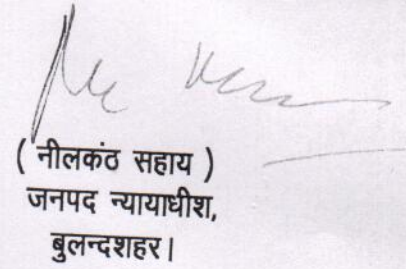 ( नीलकंठ सहाय )
जनपद न्यायाधीश,
बुलन्दशहर।